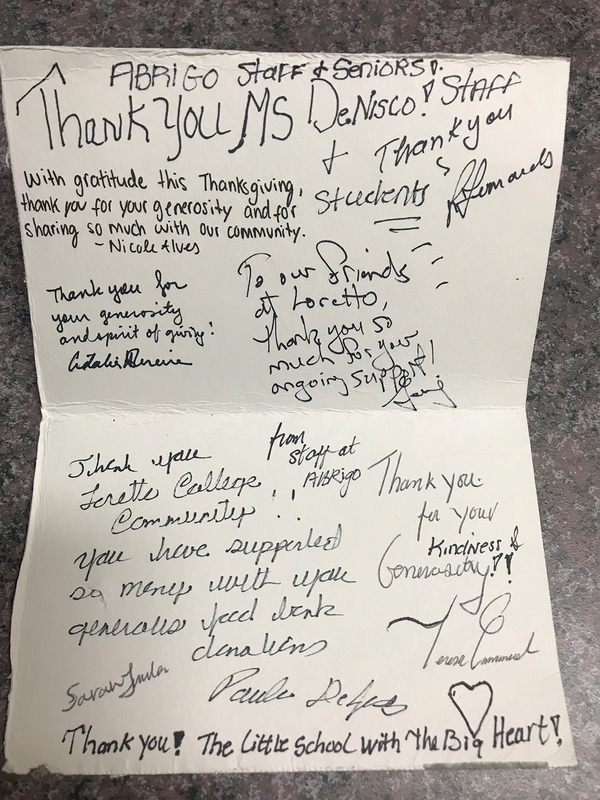 ABRIGO Staff & Seniors!
Thank You MS DeNisco! Staff
+ Thank you
Students
With gratitude this Thanksgiving,
thank you for your generosity and for
sharing so much with our community.
- Nicole Alves
Thank you for
your generosity
and spirit of giving!
To our friends
at Loretto,
thank you so
much for your
ongoing support!
Thank you
Loretto College
Community!!
from
staff at
Abrigo
you have supported
so many with you
generous food bank
donations
Thank you
for your
Kindness &
Generosity!!
Sarah
Paula
Thank you! The Little School with the Big Heart!